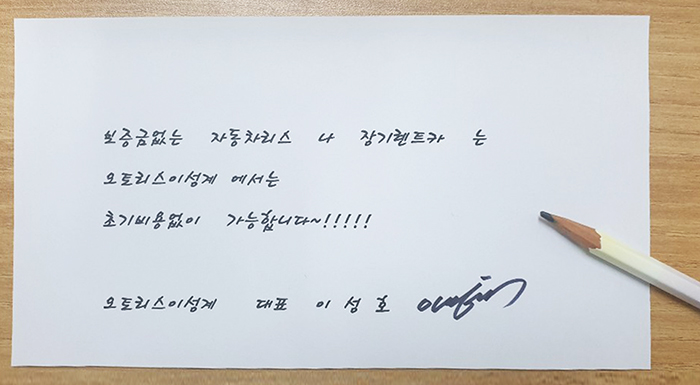 보증금없는 자동차리스 나 장기렌트카 는
오토리스이성계 에서는
초기비용없이 가능합니다~!!!!!
오토리스이성계 대표 이 성 호